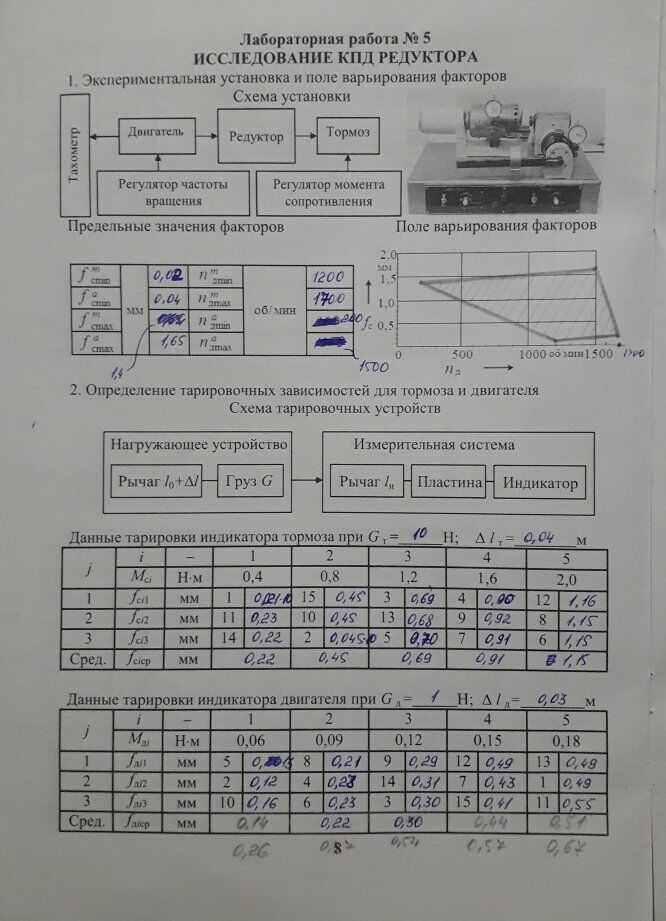 Лабораторная работа № 5
ИССЛЕДОВАНИЕ КПД РЕДУКТОРА
1. Экспериментальная установка и поле варьирования факторов
Схема установки
Тахометр
Двигатель
Редуктор
Тормоз
Регулятор частоты вращения
Регулятор момента сопротивления
Предельные значения факторов
Поле варьирования факторов
f т сmin мм 0,02 n т дmin об/мин 1200
f а сmin 0,04 n т дmax 1700
f т сmax 1,4 n а дmin 200
f а сmax 1,65 n а дmax 1500
2.0
мм
1.5
1,0
0.5
fс
0 500 1000 об/мин 1500 1700
nд
2. Определение тарировочных зависимостей для тормоза и двигателя
Схема тарировочных устройств
Нагружающее устройство
Рычаг l0+Δl
Груз G
Измерительная система
Рычаг lи
Пластина
Индикатор
Данные тарировки индикатора тормоза при Gт= 10 Н; Δ lт= 0,04 м
j i – 1 2 3 4 5
Mсi Н·м 0,4 0,8 1,2 1,6 2,0
1 fсi1 мм 1 15 0,45 3 0,69 4 0,90 12 1,16
2 fсi2 мм 11 0,23 10 0,45 13 0,68 9 0,92 8 1,15
3 fсi3 мм 14 0,22 2 0,045·10 5 0,70 7 0,91 6 1,15
Сред. fсiср мм 0,22 0,45 0,69 0,91 1,15
Данные тарировки индикатора двигателя при Gд= 1 Н; Δ lд= 0,03 м
j i – 1 2 3 4 5
Mдi Н·м 0,06 0,09 0,12 0,15 0,18
1 fдi1 мм 5 8 0,21 9 0,29 12 0,49 13 0,49
2 fдi2 мм 2 0,12 4 0,23 14 0,31 7 0,43 1 0,49
3 fдi3 мм 10 0,16 6 0,23 3 0,30 15 0,41 11 0,55
Сред. fдiср мм 0,14 0,22 0,30 0,44 0,51
0,26 0,54 0,57 0,67
8